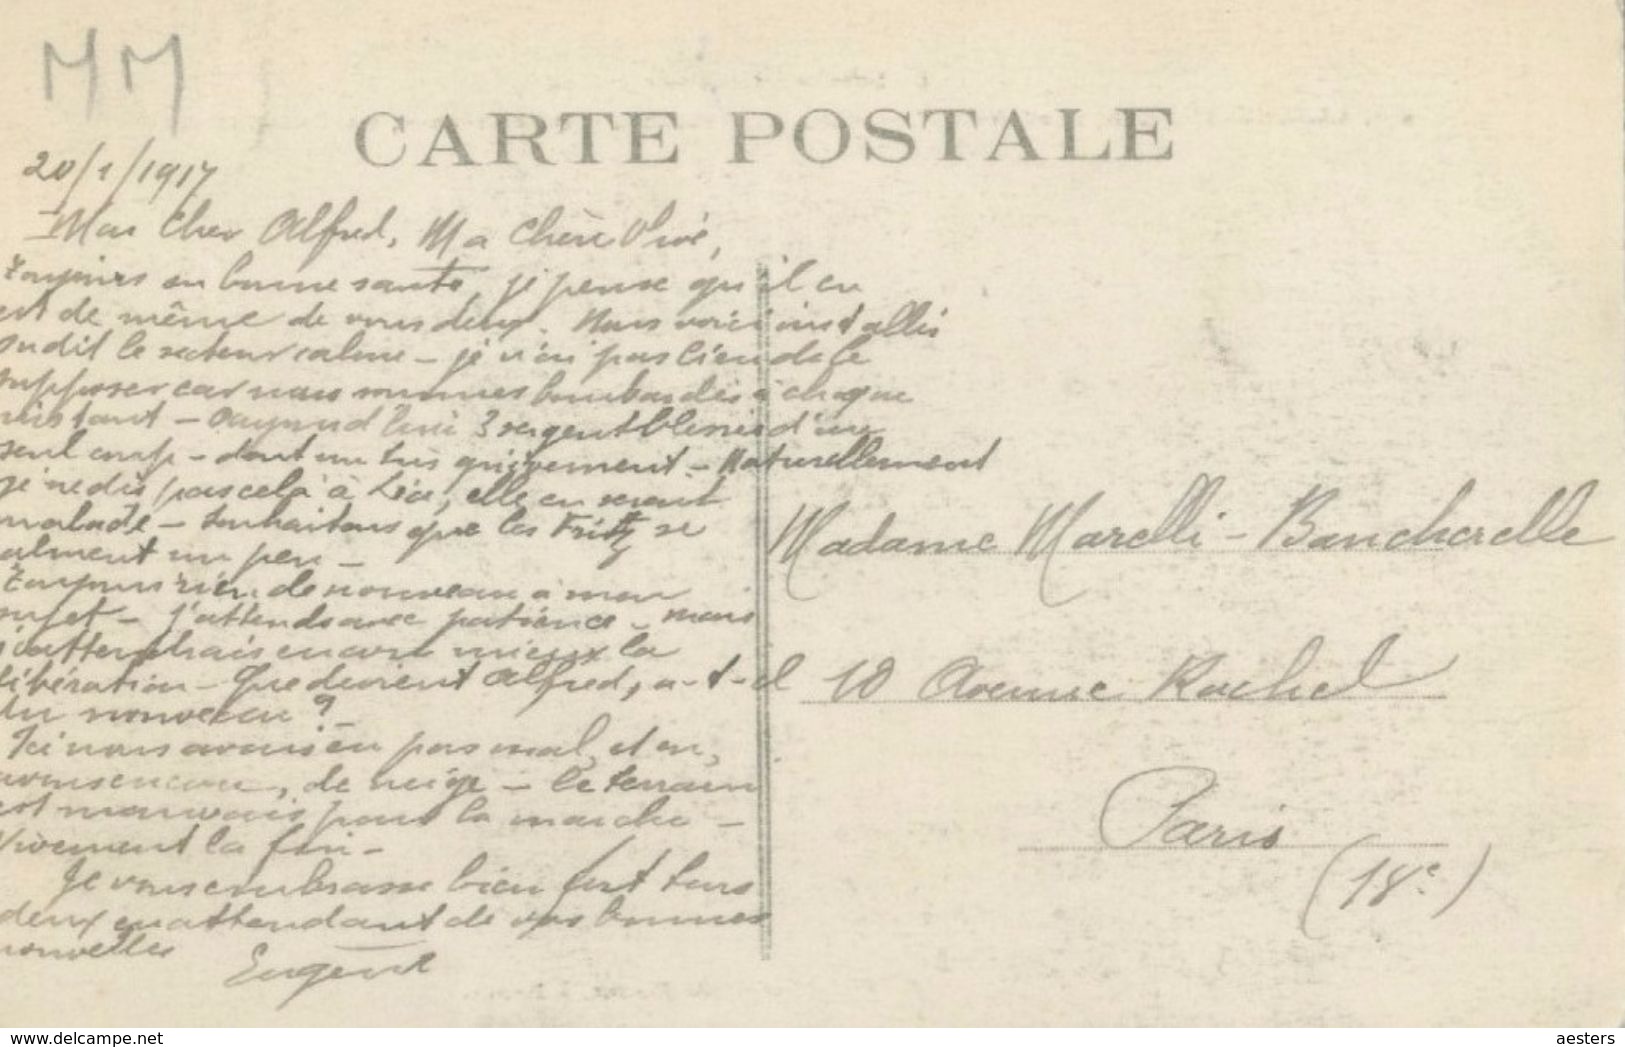 MM
CARTE POSTALE
20/1/1917
Mon Cher Alfred, Ma Chère
Toujours en bonne santé, je pense qu'il en
est de même de vous deux. Nous voici installés
sudit le secteur calme - je n'ai pas lieu de le
supposer car nous sommes bombardés à chaque
instant - Aujourd'hui 3 sergent blessés d'un
seul coup - dont un très grièvement - Naturellement
je ne dis pas cela à Léa, elle en serait
malade - Souhaitons que les Fritz se
calment un peu -
Toujours rien de nouveau à mon
sujet - j'attends avec patience - mais
j'attendrais encore mieux la
libération - Que devient Alfred, a-t-il
du nouveau ?
Ici nous avons eu pas mal, et en
avons encore, de neige - le terrain
est mauvais pour la marche -
Vivement la fin -
Je vous embrasse bien fort tous
deux en attendant de vos bonnes
nouvelles
Eugène
Madame Marelli-Bancherelle
10 Avenue Rachel
Paris
(18e)
www.delcampe.net
aesters